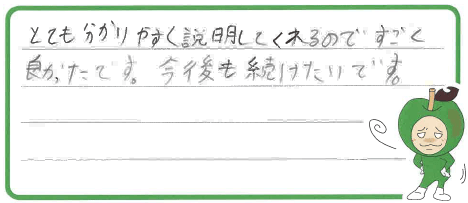 とても分かりやすく説明してくれるのですごく
良かったです。今後も続けたいです。